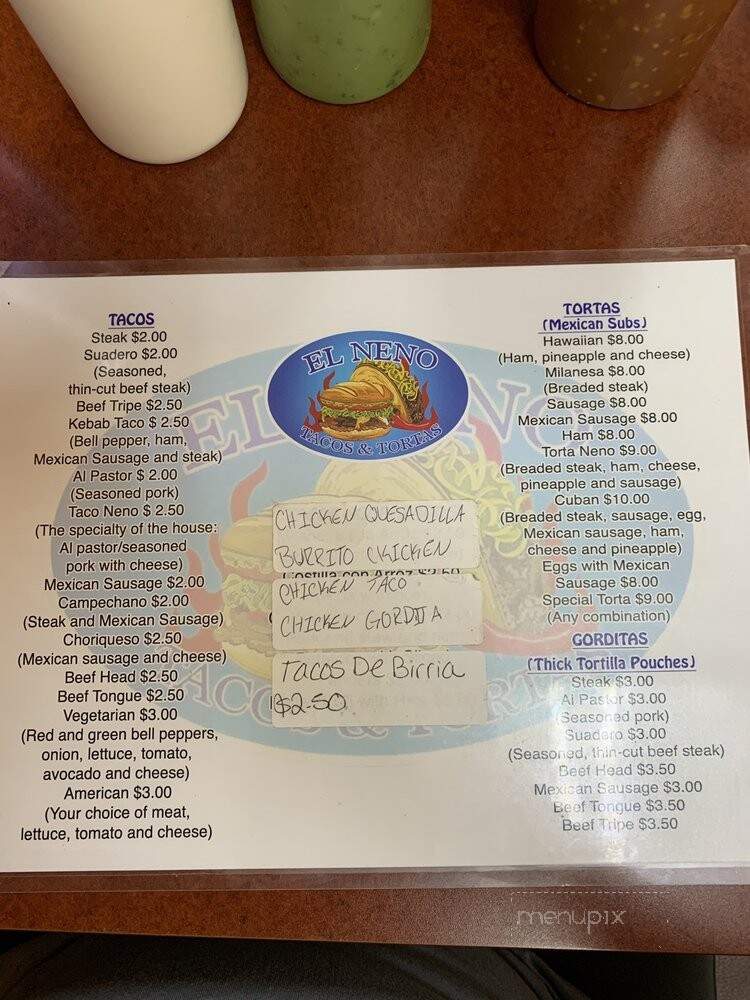 TACOS
Steak $2.00
Suadero $2.00
(Seasoned,
thin-cut beef steak)
Beef Tripe $2.50
Kebab Taco $ 2.50
(Bell pepper, ham,
Mexican Sausage and steak)
Al Pastor $ 2.00
(Seasoned pork)
Taco Neno $ 2.50
(The specialty of the house:
Al pastor/seasoned
pork with cheese)
Mexican Sausage $2.00
Campechano $2.00
(Steak and Mexican Sausage)
Choriqueso $2.50
(Mexican sausage and cheese)
Beef Head $2.50
Beef Tongue $2.50
Vegetarian $3.00
(Red and green bell peppers,
onion, lettuce, tomato,
avocado and cheese)
American $3.00
(Your choice of meat,
lettuce, tomato and cheese)
EL NENO
TACOS & TORTAS
CHICKEN QUESADILLA
BURRITO CHICKEN
Costilla con Arroz $2.50
CHICKEN TACO
CHICKEN GORDITA
Tacos De Birria
$2.50
TORTAS
(Mexican Subs)
Hawaiian $8.00
(Ham, pineapple and cheese)
Milanesa $8.00
(Breaded steak)
Sausage $8.00
Mexican Sausage $8.00
Ham $8.00
Torta Neno $9.00
(Breaded steak, ham, cheese,
pineapple and sausage)
Cuban $10.00
(Breaded steak, sausage, egg,
Mexican sausage, ham,
cheese and pineapple)
Eggs with Mexican
Sausage $8.00
Special Torta $9.00
(Any combination)
GORDITAS
(Thick Tortilla Pouches)
Steak $3.00
Al Pastor $3.00
(Seasoned pork)
Suadero $3.00
(Seasoned, thin-cut beef steak)
Beef Head $3.50
Mexican Sausage $3.00
Beef Tongue $3.50
Beef Tripe $3.50
menupix